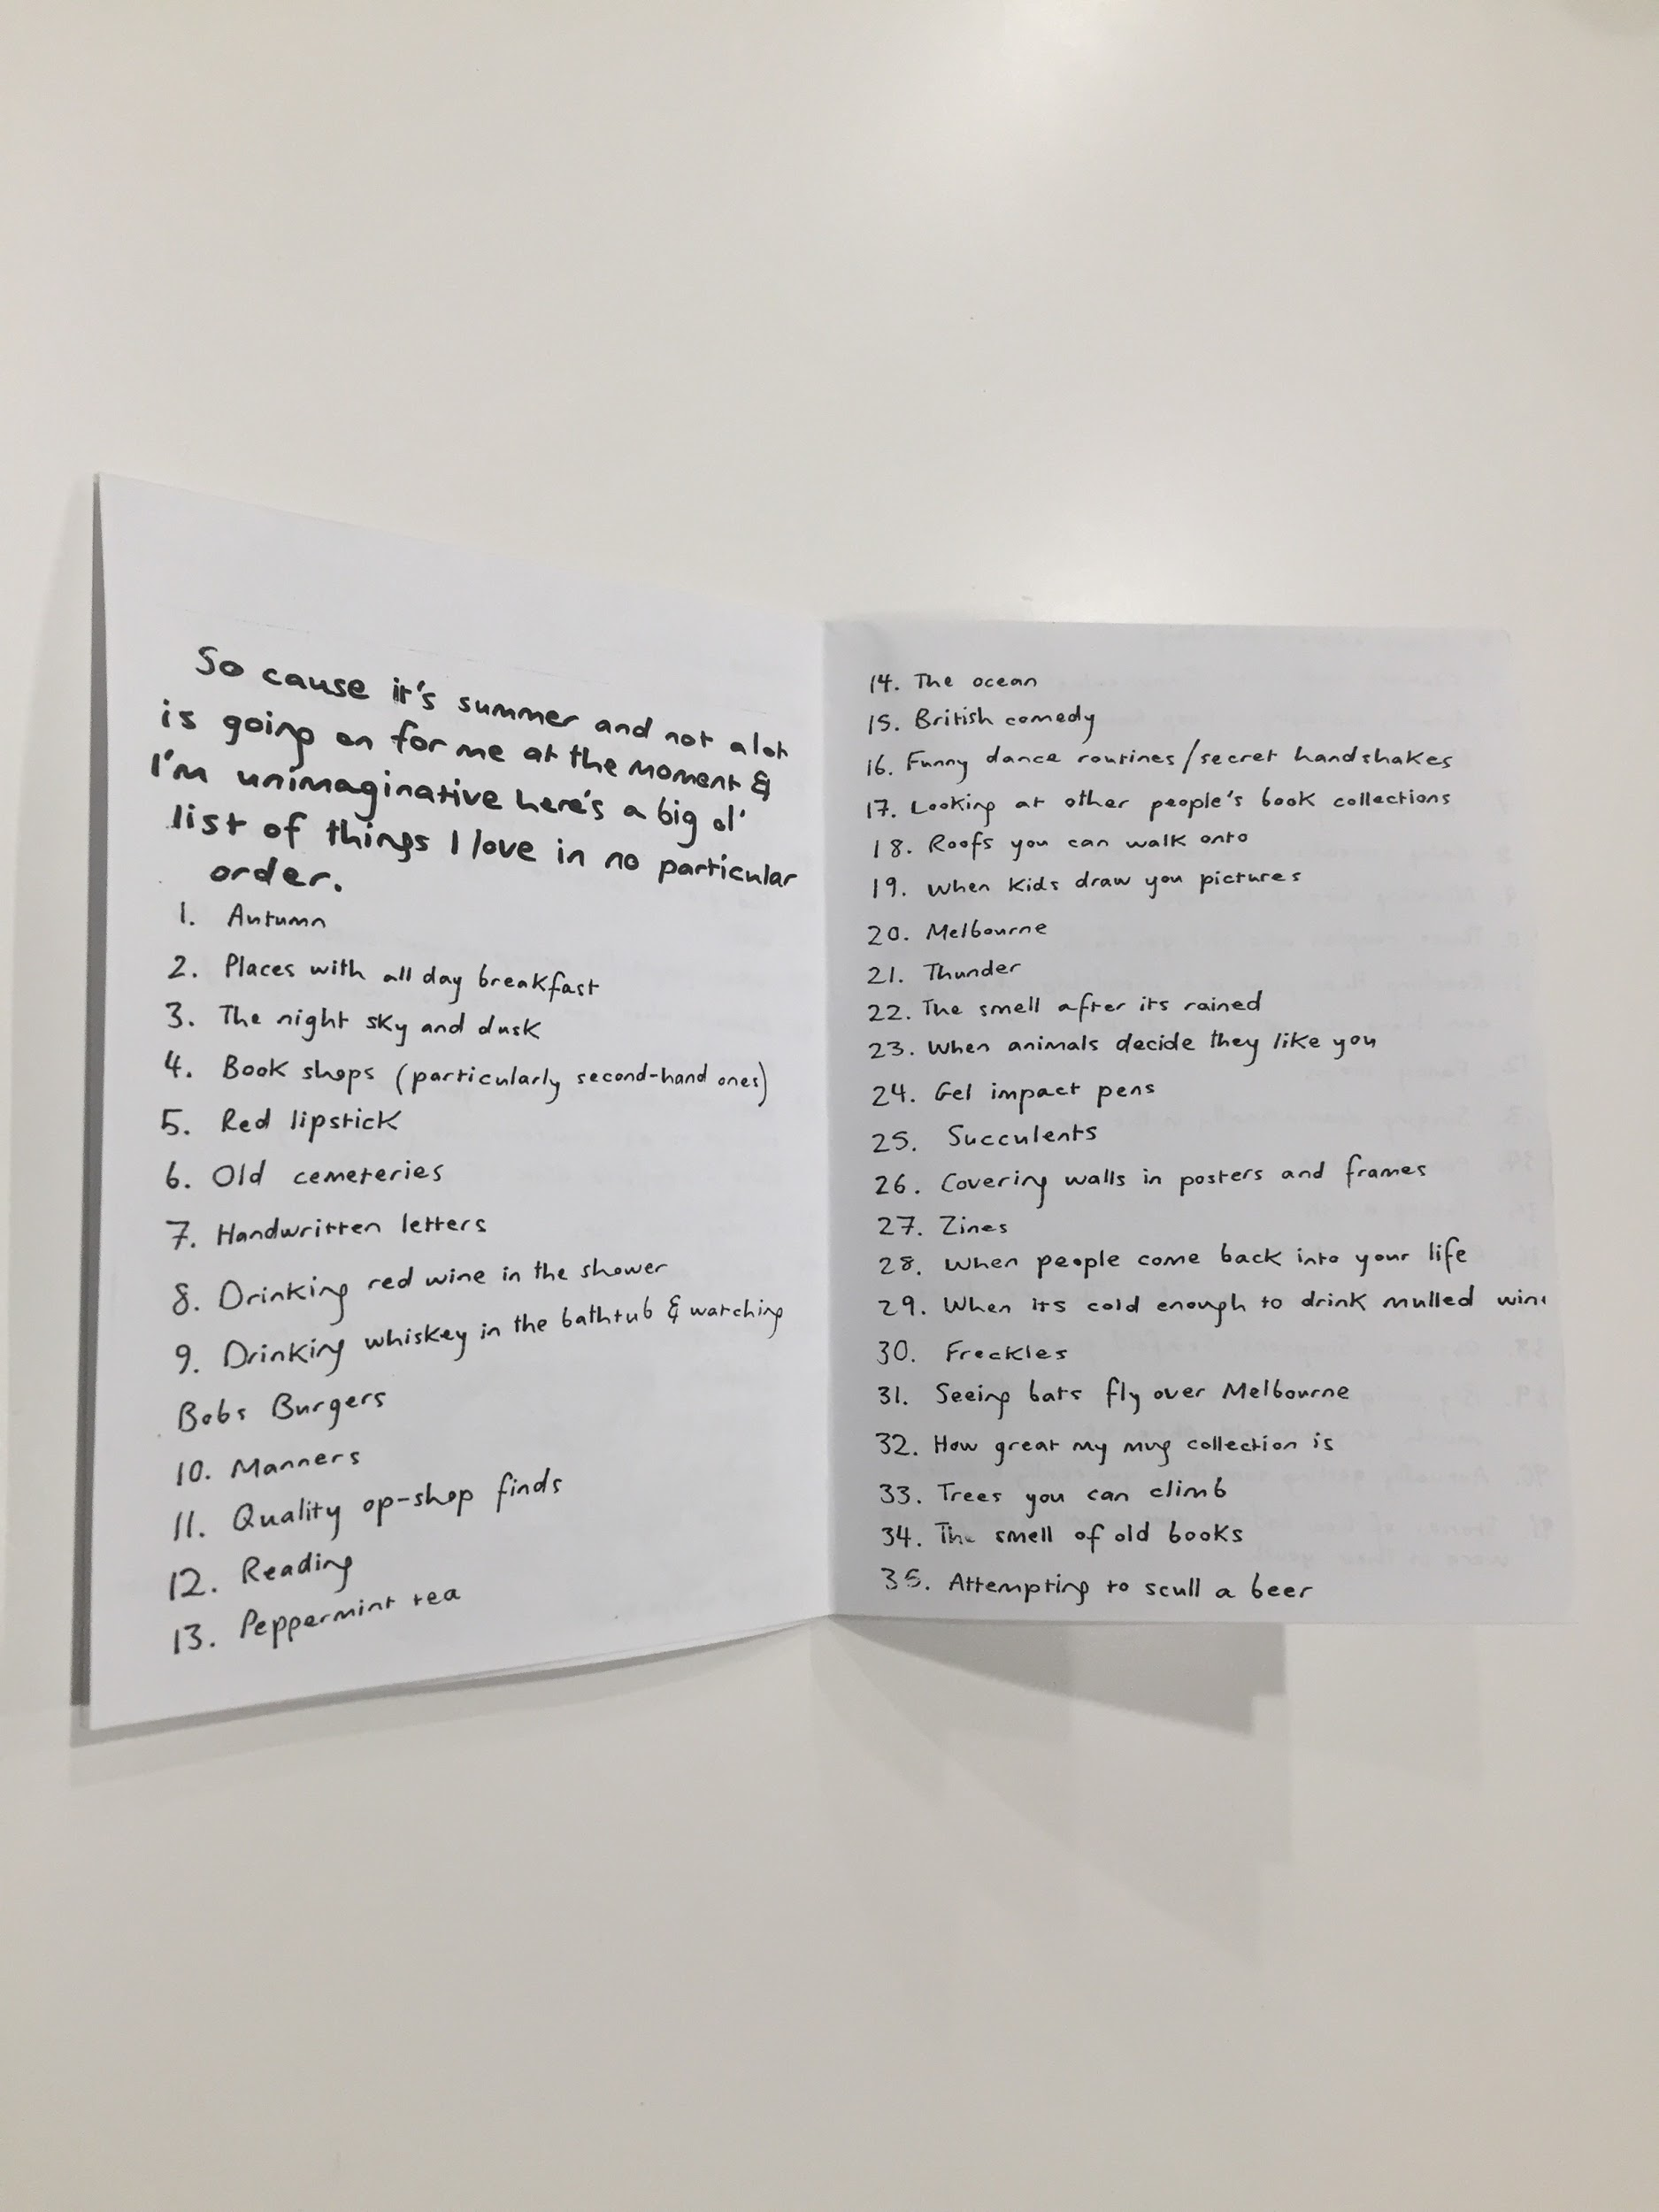 So cause it's summer and not alot
is going on for me at the moment &
I'm unimaginative here's a big ol'
list of things I love in no particular
order.
1. Autumn
2. Places with all day breakfast
3. The night sky and dusk
4. Book shops (particularly second-hand ones)
5. Red lipstick
6. Old cemeteries
7. Handwritten letters
8. Drinking red wine in the shower
9. Drinking whiskey in the bathtub & watching
Bobs Burgers
10. Manners
11. Quality op-shop finds
12. Reading
13. Peppermint tea
14. The ocean
15. British comedy
16. Funny dance routines/secret handshakes
17. Looking at other people's book collections
18. Roofs you can walk onto
19. When kids draw you pictures
20. Melbourne
21. Thunder
22. The smell after its rained
23. When animals decide they like you
24. Gel impact pens
25. Succulents
26. Covering walls in posters and frames
27. Zines
28. When people come back into your life
29. When its cold enough to drink mulled wine
30. Freckles
31. Seeing bats fly over Melbourne
32. How great my mug collection is
33. Trees you can climb
34. The smell of old books
35. Attempting to scull a beer